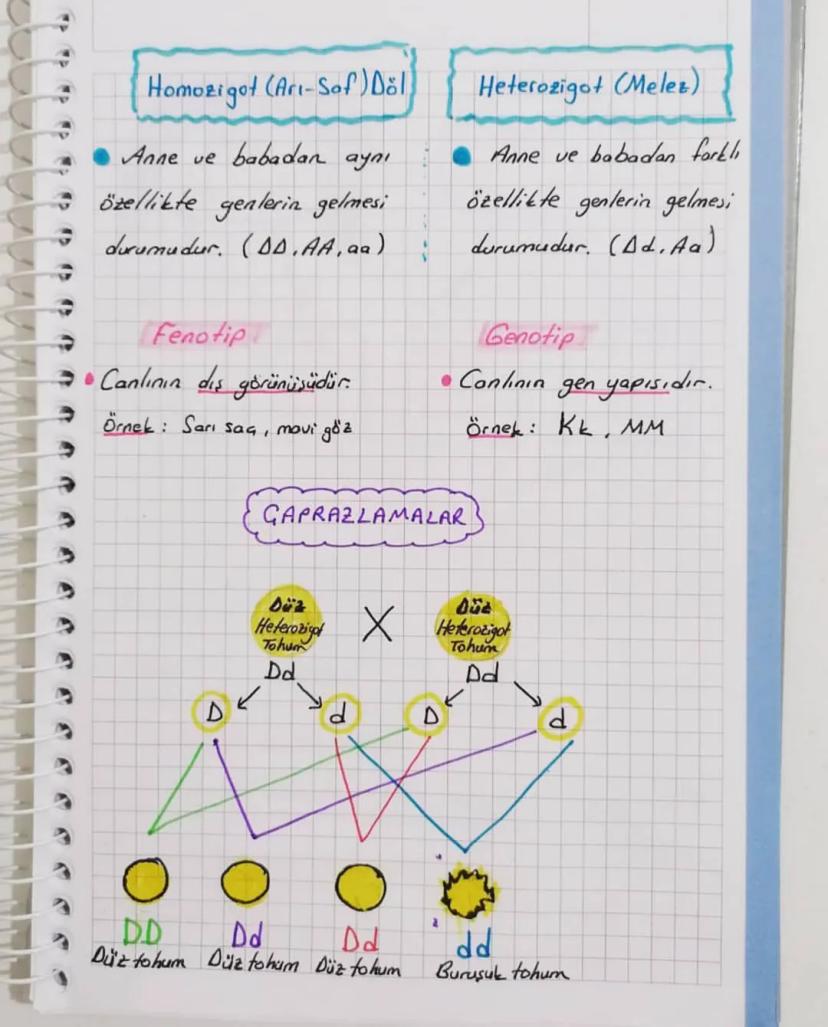 Homozigot (Arı-Saf) Döl
Anne ve babadan aynı
özellikte genlerin gelmesi
durumudur. (DD, AA, aa)
Heterozigot (Melez)
Anne ve babadan farklı
özellikte genlerin gelmesi
durumudur. (Dd, Aa)
Fenotip
Canlının dış görünüşüdür.
Örnek: Sarı saç, mavi göz
Genotip
Canlının gen yapısıdır.
Örnek: Kk, MM
ÇAPRAZLAMALAR
Düz
Heterozigot
Tohum
X
Düz
Heterozigot
Tohum
Dd
Dd
D
d
D
d
DD
Dd
Dd
dd
Düz tohum
Düz tohum
Düz tohum
Buruşuk tohum